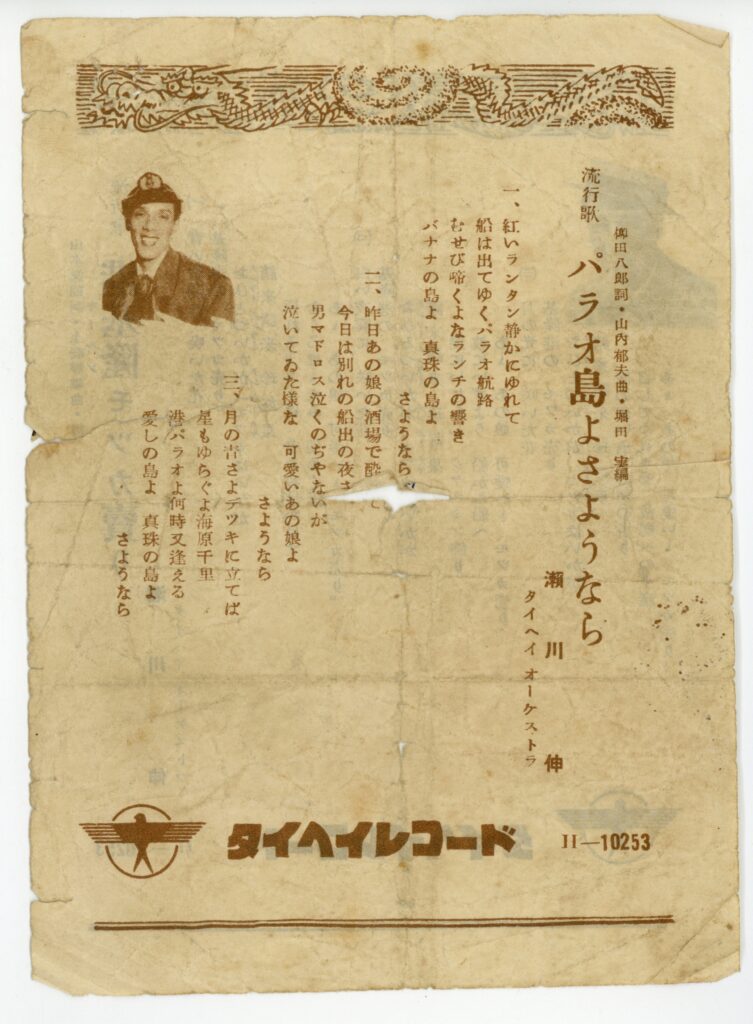 柳田八郎詞・山内郁夫曲・堀田 実編
流行歌
パラオ島よさようなら
瀬川伸
タイヘイ オーケストラ
一、紅いランタン静かにゆれて
船は出てゆくパラオ航路
むせび啼くよなランチの響き
バナナの島よ 真珠の島よ
さようなら
二、昨日あの娘の酒場で酔 て
今日は別れの船出の夜さ
男マドロス泣くのぢやないが
泣いてゐた様な 可愛いあの娘よ
さようなら
三、月の青さよデツキに立てば
星もゆらぐよ海原千里
港パラオよ何時又逢える
愛しの島よ 真珠の島よ
さようなら
タイヘイレコード
H—10253